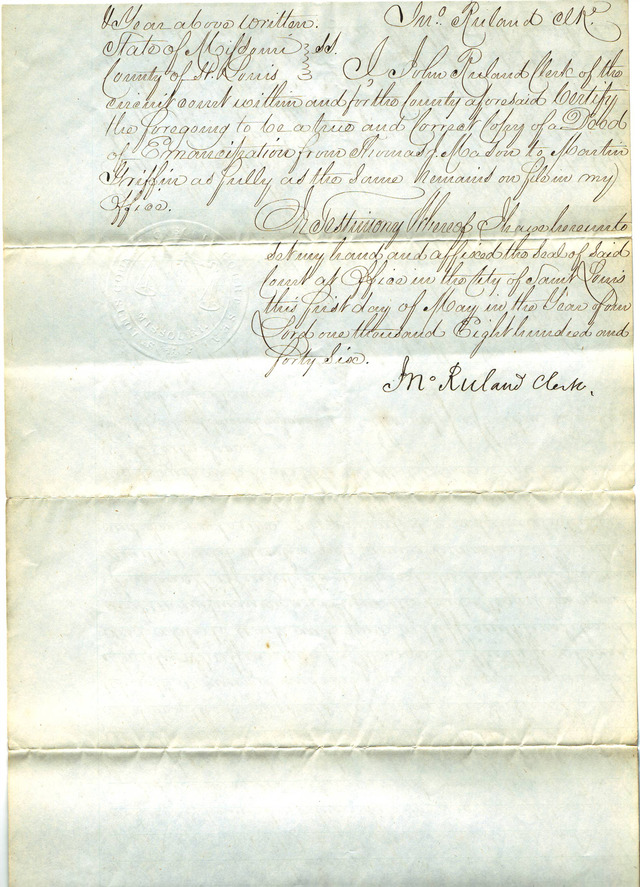 & Year above written. Jno. Ruland Clk.
State of Missouri } ss.
County of St. Louis } I, John Ruland Clerk of the
circuit court within and for the County aforesaid Certify
the foregoing to be a true and Correct Copy of a Deed
of Emancipation from Thomas J. Mason to Martin
Griffin as fully as the same remains on file in my
Office.
In Testimony Whereof I have hereunto
set my hand and affixed the seal of said
court at Office in the City of Saint Louis
this first day of May in the Year of our
Lord one thousand Eight hundred and
forty Six.
Jno. Ruland Clerk.